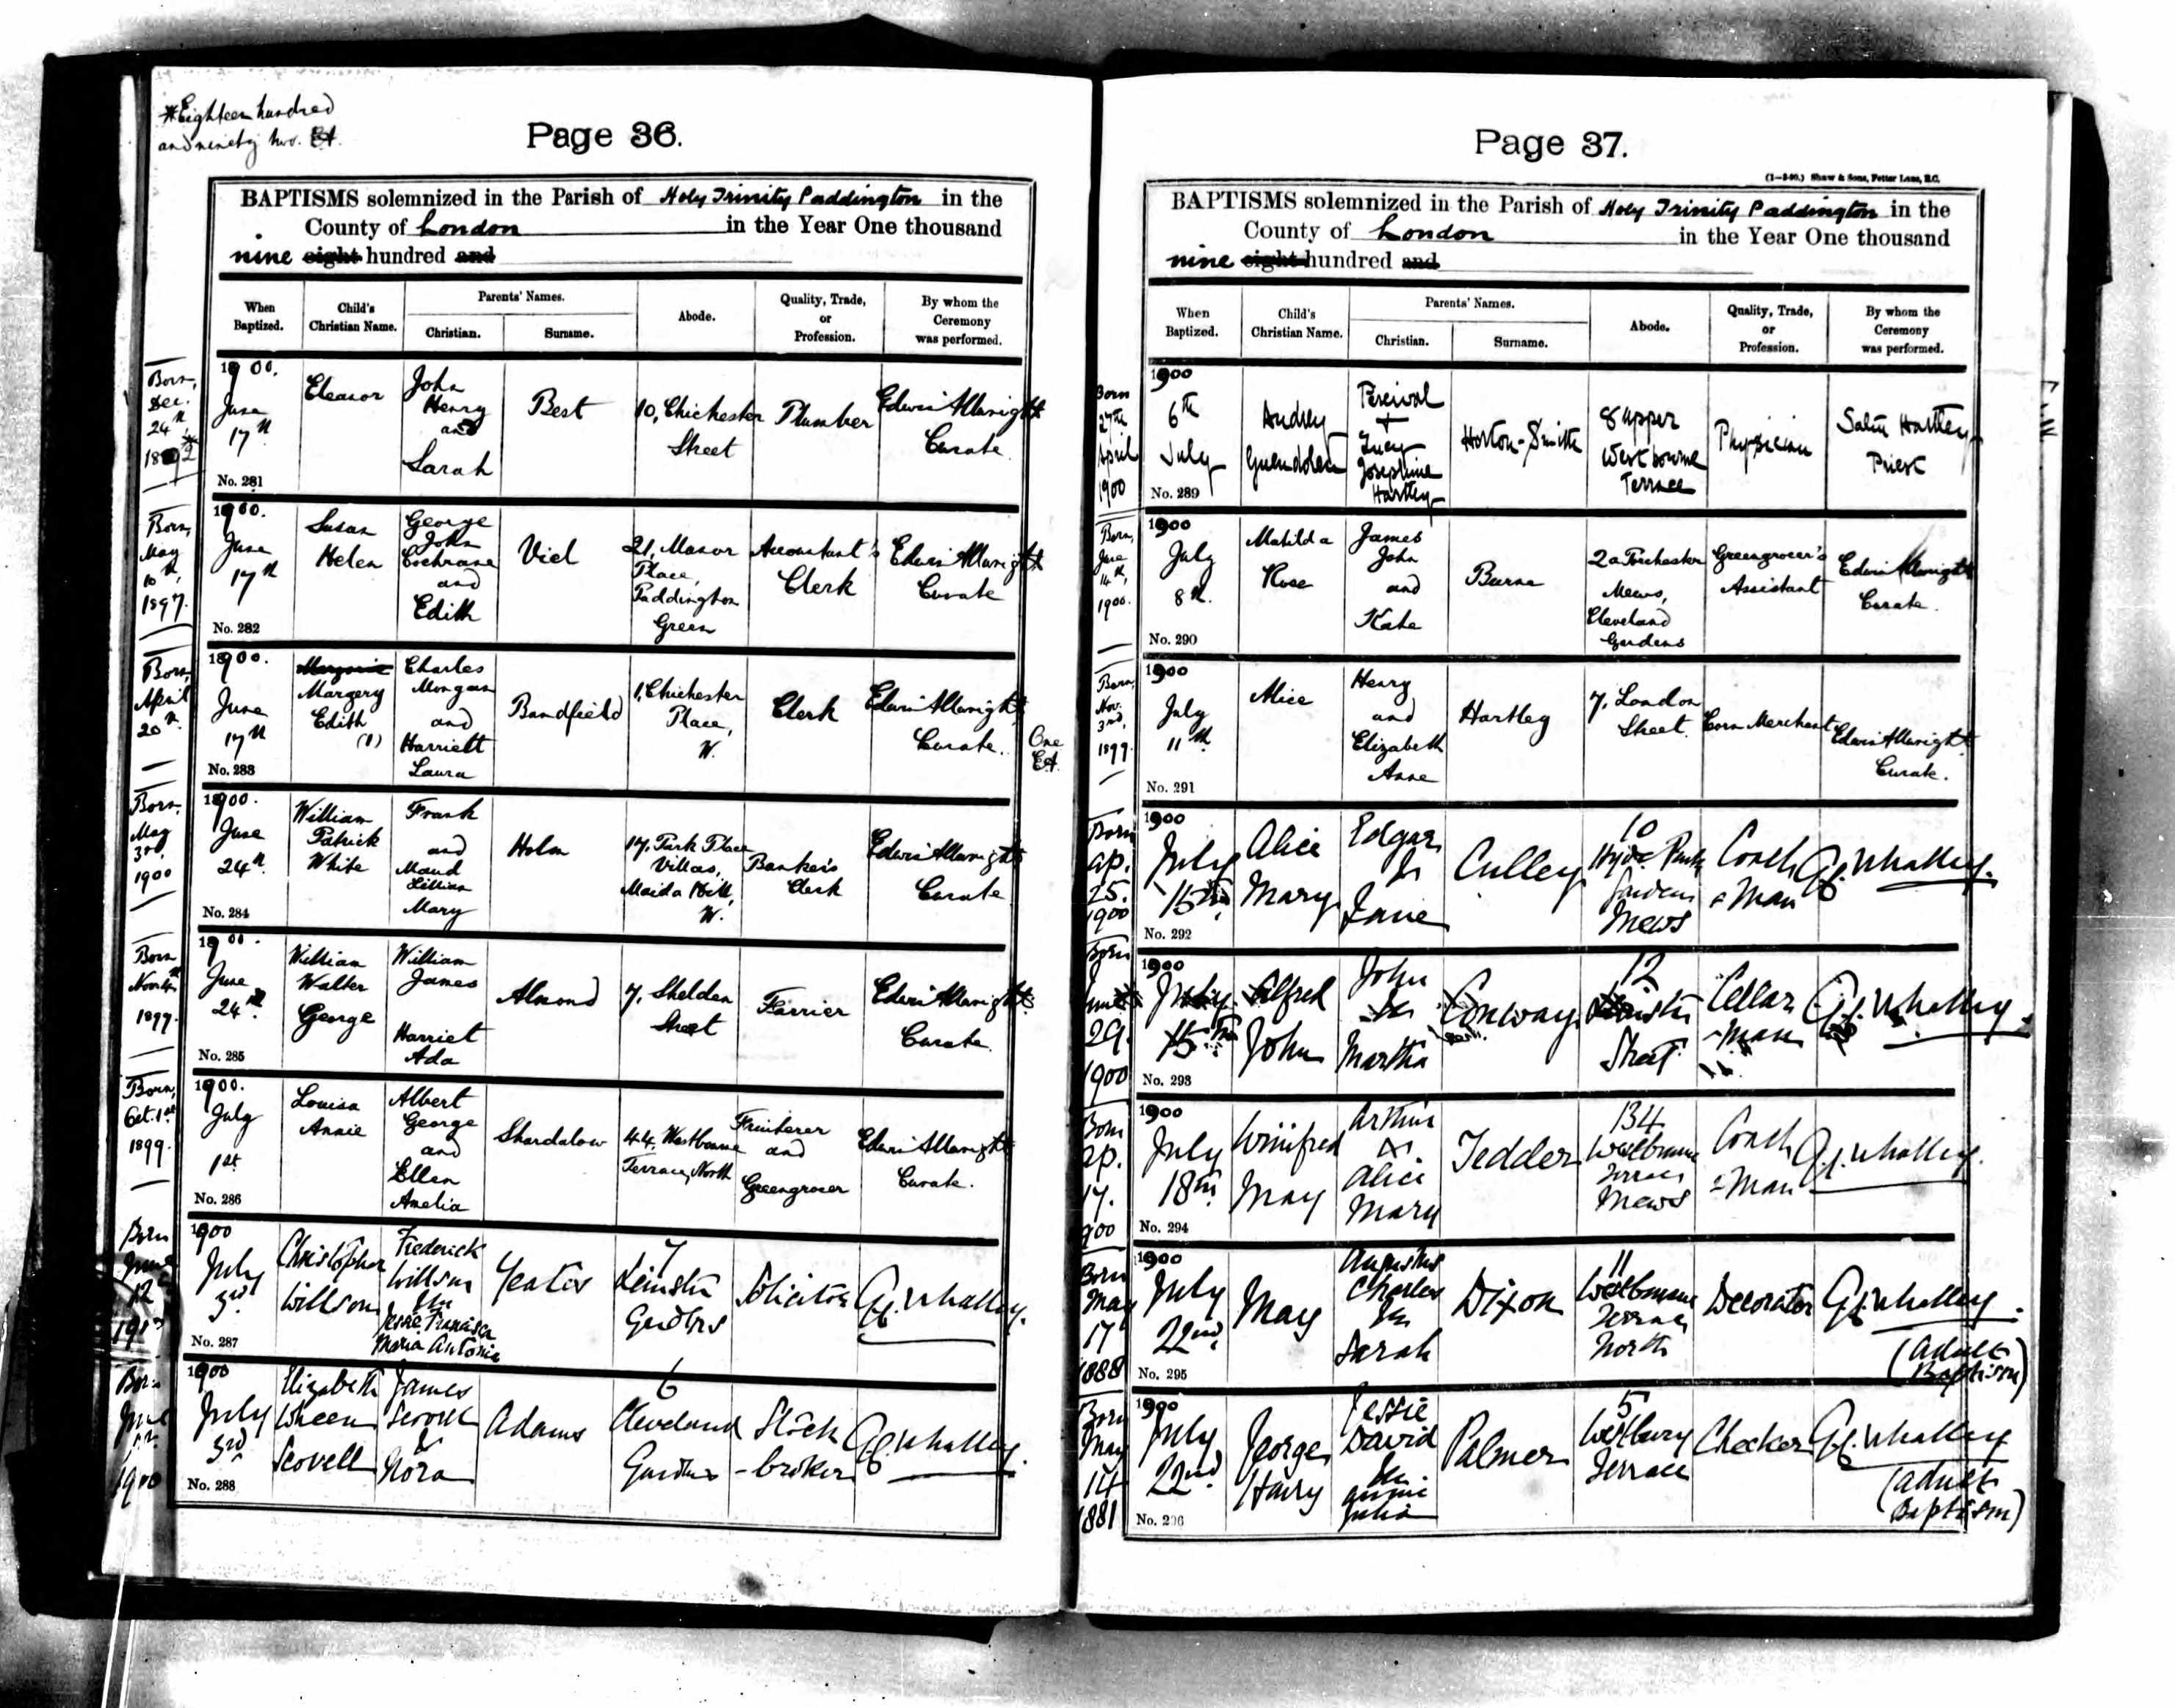 *Eighteen hundred
and ninety two. EA.
Page 36.
BAPTISMS solemnized in the Parish of Holy Trinity Paddington in the
County of London in the Year One thousand
nine eight hundred and
When Baptized.
Child's Christian Name.
Parents' Names.
Christian.
Surname.
Abode.
Quality, Trade, or Profession.
By whom the Ceremony was performed.
Born, Dec. 24th, 1892*
1900. June 17th
No. 281
Eleanor
John Henry and Sarah
Best
10, Chichester Street
Plumber
Edwin Allwright Curate.
Born, May 10th, 1897.
1900. June 17th
No. 282
Susan Helen
George John Cochrane and Edith
Viel
21, Manor Place, Paddington Green
Accountant's Clerk
Edwin Allwright Curate
Born, April 20th
1900. June 17th
No. 283
Marjorie Margery Edith (1)
Charles Morgan and Harriett Laura
Bandfield
1, Chichester Place, W.
Clerk
Edwin Allwright Curate.
One EA.
Born, May 3rd, 1900
1900. June 24th
No. 284
William Patrick White
Frank and Maud Lillian Mary
Holm
17, Park Place Villas, Maida Hill, W.
Banker's Clerk
Edwin Allwright Curate
Born 1899.
1900. June 24th
No. 285
William Walter George
William James Harriet Ada
Almond
7, Sheldon Street
Farrier
Edwin Allwright Curate.
Born, Oct. 1st 1899.
1900. July 1st
No. 286
Louisa Annie
Albert George and Ellen Amelia
Shardalow
44, Westbourne Terrace, North
Fruiterer and Greengrocer
Edwin Allwright Curate.
Born June 12
1900 July 3rd
No. 287
Christopher Willson
Frederick Willson & Jesse Francisca Maria Antonia
Yeates
7 Leinster Gardens
Solicitor
G.J. Whalley.
Born 1900
1900 July 3rd
No. 288
Elizabeth Wheen Scovell
James & Nora
Adams
6 Cleveland Gardens
Stock-broker
G.J. Whalley.
Page 37.
(1—3-90.) Shaw & Sons, Fetter Lane, E.C.
BAPTISMS solemnized in the Parish of Holy Trinity Paddington in the
County of London in the Year One thousand
nine eight hundred and
When Baptized.
Child's Christian Name.
Parents' Names.
Christian.
Surname.
Abode.
Quality, Trade, or Profession.
By whom the Ceremony was performed.
Born 27th April 1900
1900 6th July
No. 289
Audrey Guendolen
Percival + Lucy Josephine Hartley
Horton-Smith
8 Upper Westbourne Terrace
Physician
Hartley Priest
Born, June 14th, 1900.
1900 July 8th.
No. 290
Matilda Rose
James John and Kate
Burne
2a Porchester Mews, Cleveland Gardens
Greengrocer's Assistant
Edwin Allwright Curate.
Born, Nov. 3rd, 1899
1900 July 11th
No. 291
Alice
Henry and Elizabeth Anne
Hartley
7, London Street
Corn Merchant
Edwin Allwright Curate.
Born Ap. 25. 1900
1900 July 15th
No. 292
Alice Mary
Edgar & Jane
Culley
10 Hyde Park Gardens Mews
Coach-Man
G.J. Whalley.
Born June 29. 1900
1900 July 15th
No. 293
Alfred John
John & Martha
Conway
12 Street
Cellar-Man
G.J. Whalley.
Born Ap. 17. 900
1900 July 18th
No. 294
Winifred May
Arthur & Alice Mary
Tedder
134 Westbourne Terrace Mews
Coach-Man
G.J. Whalley.
Born May 17 1888
1900 July 22nd
No. 295
May
Augustus Charles & Sarah
Dixon
11 Westbourne Terrace North
Decorator
G.J. Whalley.
(Adult Baptism)
Born May 14 1881
1900 July 22nd
No. 296
George Harry
Jessie David & Annie Julia
Palmer
5 Westbury Terrace
Checker
G.J. Whalley
(Adult Baptism)